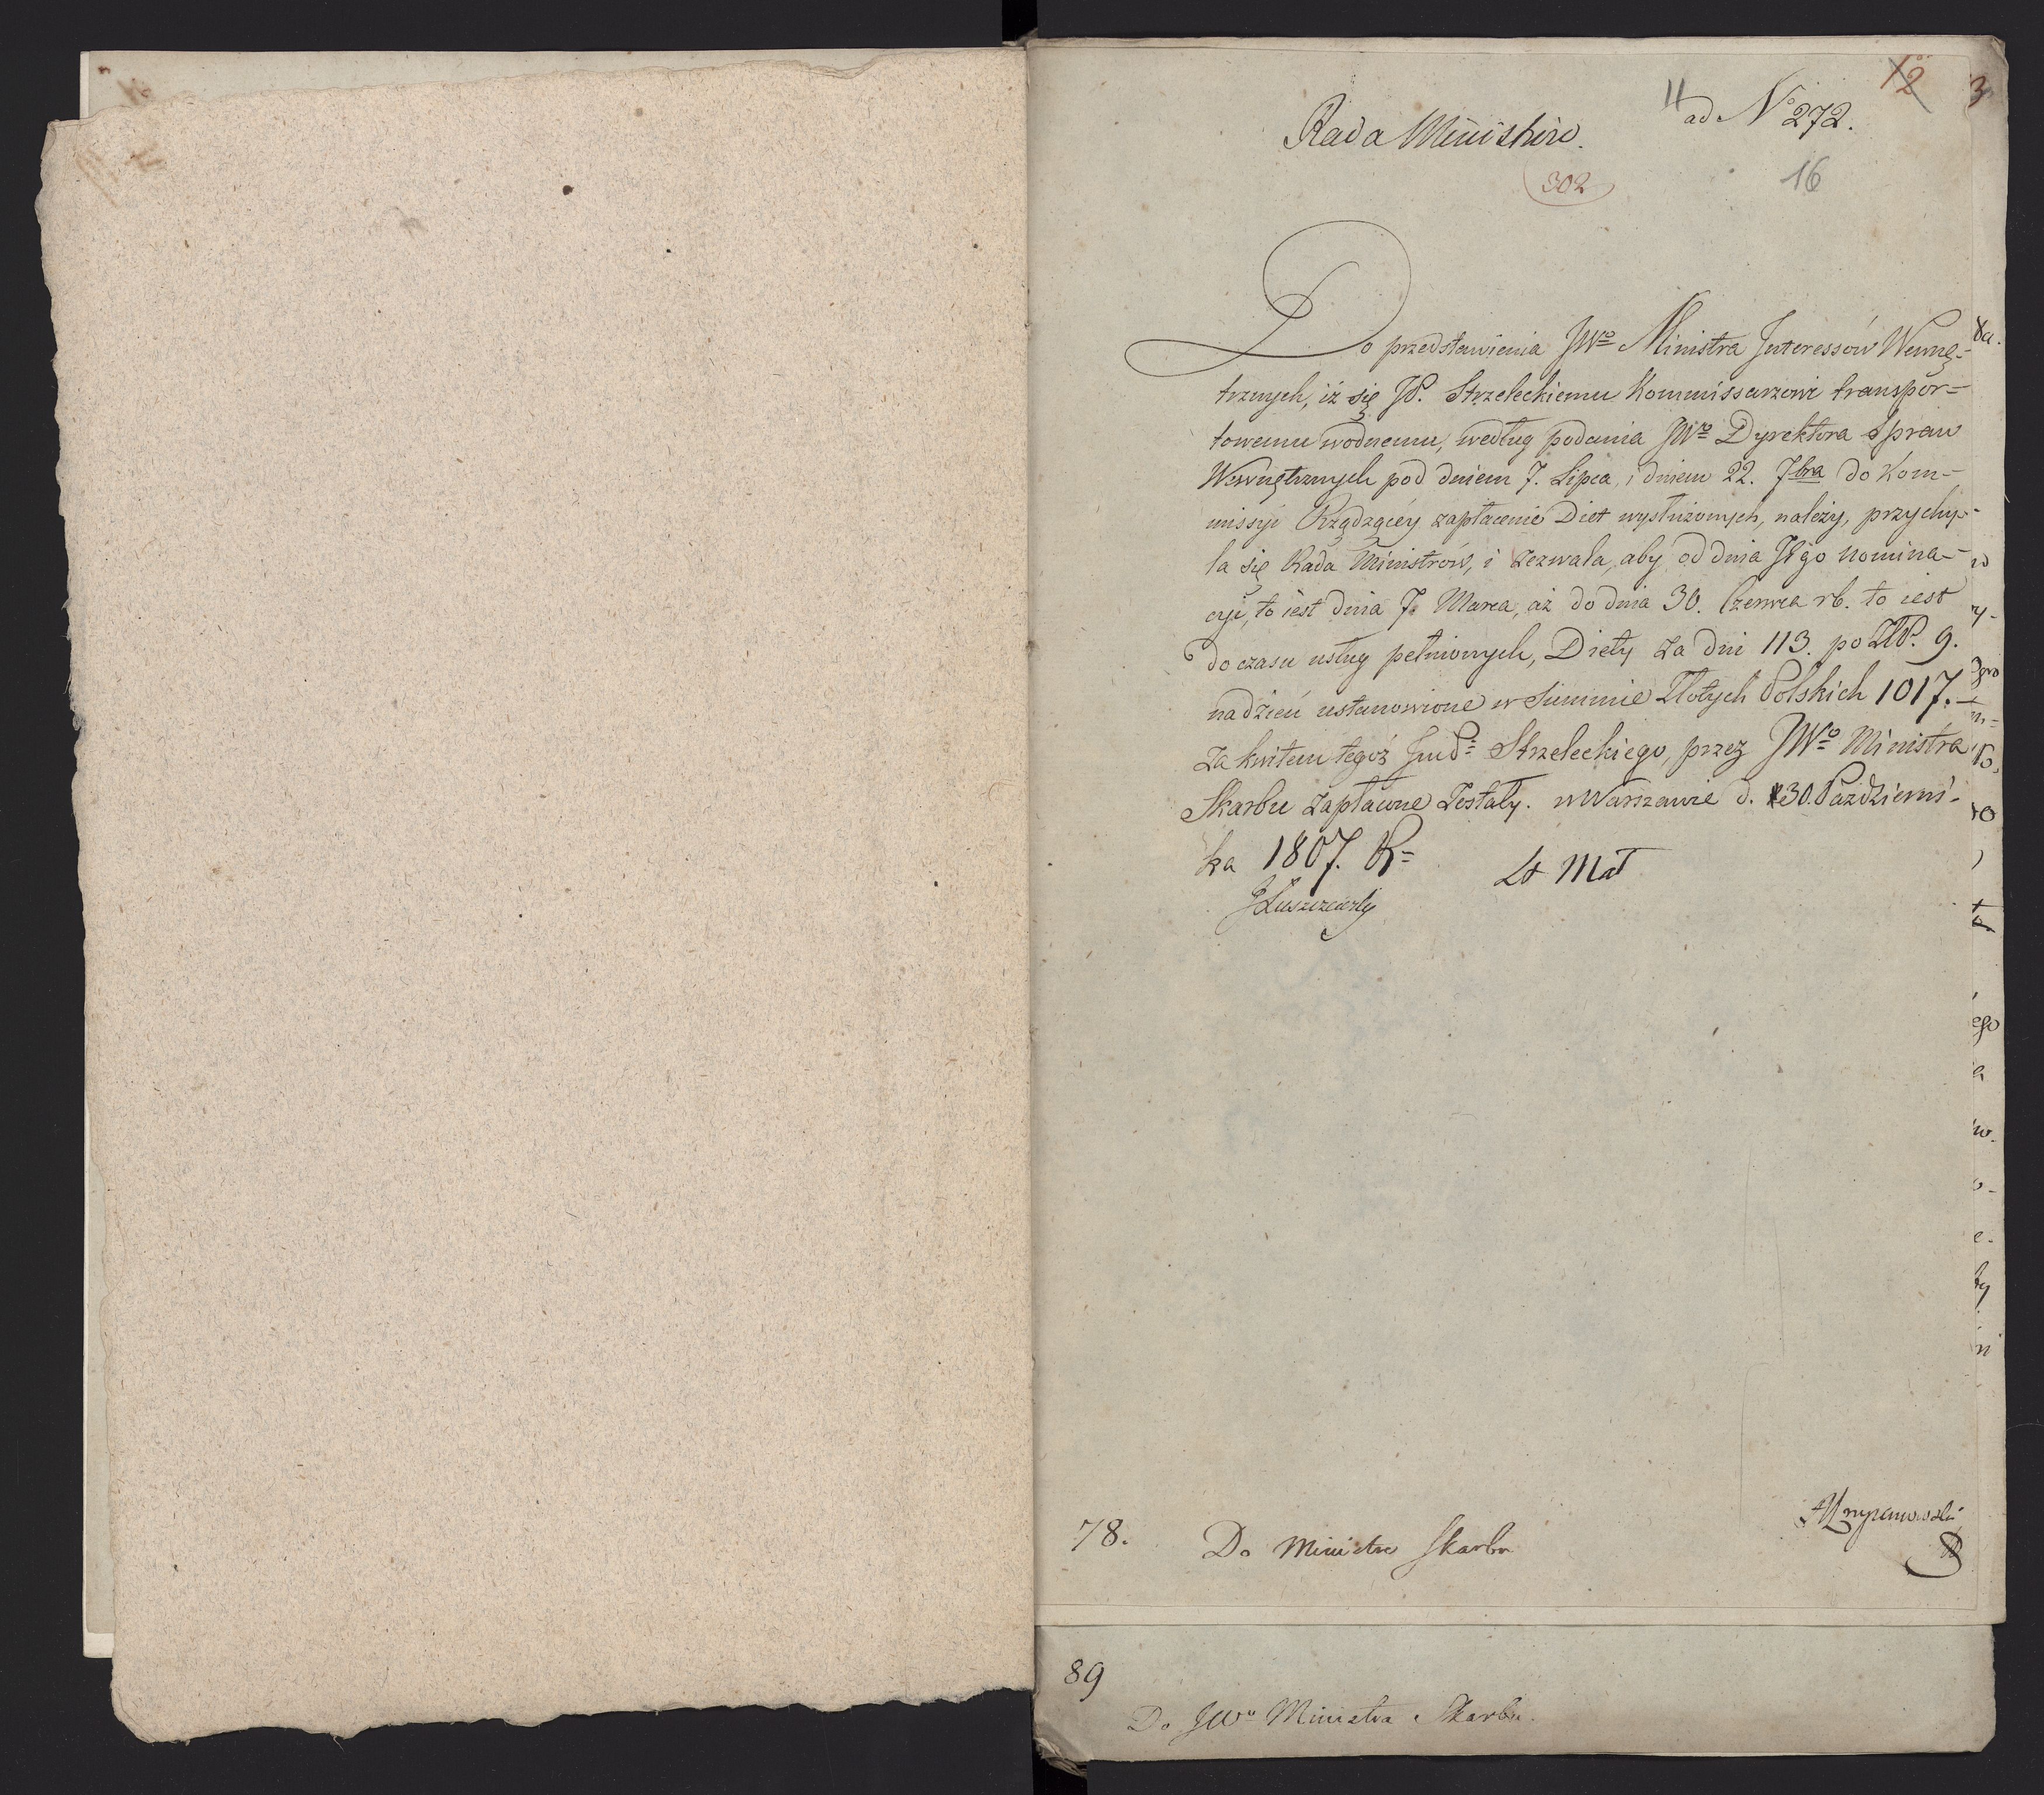 12 3
11 ad No 272.
Rada Ministrów.
302 16
Do przedstawienia JWo Ministra Interessów Wewnę-
trznych, iż się JP. Strzeleckiemu Kommissarzowi transpor-
towemu wodnemu, według podania JWo Dyrektora Spraw
Wewnętrznych pod dniem 7. Lipca, i dniem 22. 7bra do Kom-
missyi Rządzącéy zapłacenie Diet wysłużonych, należy, przychy-
la się Rada Ministrów, i zezwala, aby od dnia Jego nomina-
cyi, to iest dnia 7. Marca, aż do dnia 30. Czerwca rb. to iest
do czasu usług pełnionych, Diety za dni 113. po ZłP. 9.
na dzień ustanowione w Summie Złotych Polskich 1017.—
za kwitem tegoż JmP: Strzeleckiego, przez JWo Ministra
Skarbu zapłacone zostały. w Warszawie d. 30. Październi-
ka 1807. R=
St Mał
JLuszczewsky
78. Do Ministra Skarbu
89
Do JWo Ministra Skarbu.